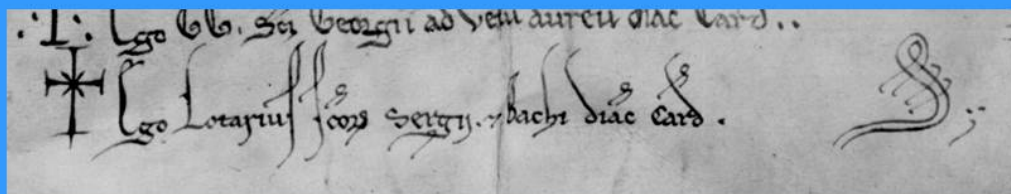 .I. Ego GG. Sci Georgii ad velu aureu diac Card..
Ego Lotarius scoꝝ Sergij ⁊ bachi diac card.